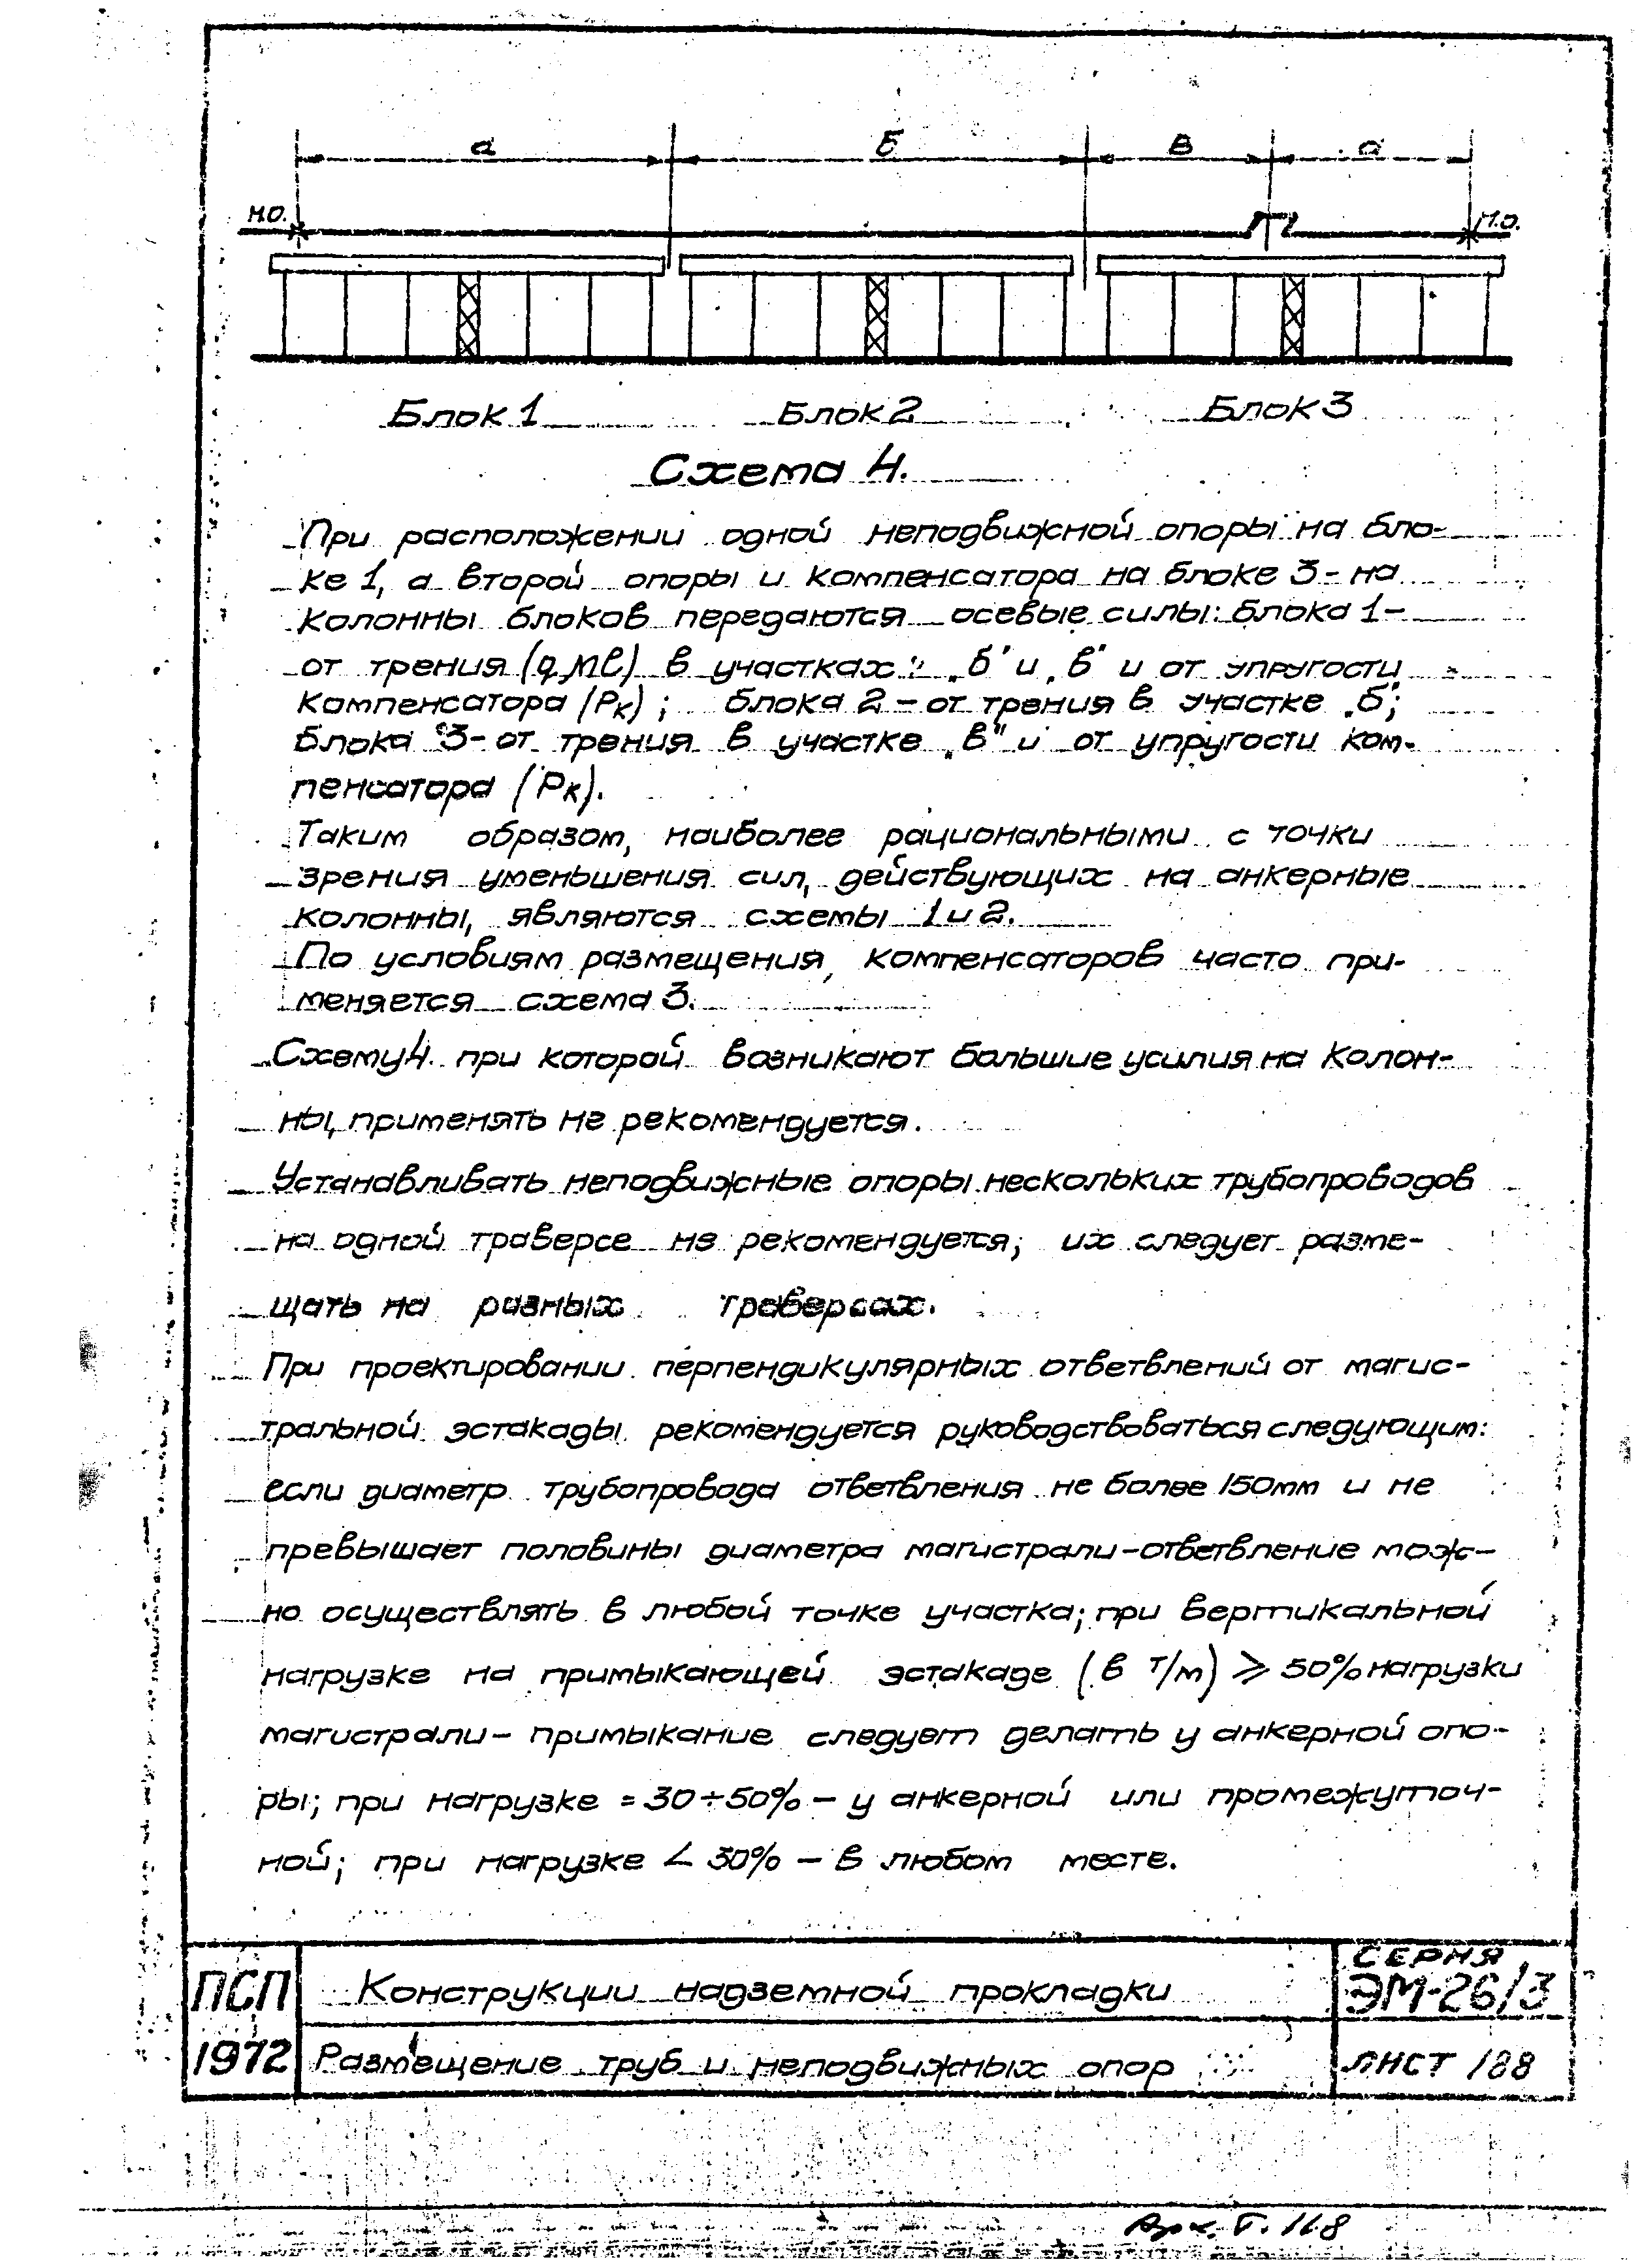 а Б В а
М.О. М.О.
Блок 1 Блок 2 Блок 3
Схема 4.
При расположении одной неподвижной опоры на бло-
ке 1, а второй опоры и компенсатора на блоке 3 - на
колонны блоков передаются осевые силы: блока 1 -
от трения (q μ l) в участках: „б" и „в" и от упругости
компенсатора (Pк); блока 2 - от трения в участке „б";
блока 3 - от трения в участке „в" и от упругости ком-
пенсатора (Pк).
Таким образом, наиболее рациональными с точки
зрения уменьшения сил, действующих на анкерные
колонны, являются схемы 1 и 2.
По условиям размещения, компенсаторов часто при-
меняется схема 3.
Схему 4. при которой возникают большие усилия на колон-
ны, применять не рекомендуется.
Устанавливать неподвижные опоры нескольких трубопроводов
на одной траверсе не рекомендуется; их следует разме-
щать на разных траверсах.
При проектировании перпендикулярных ответвлений от магис-
тральной эстакады рекомендуется руководствоваться следующим:
если диаметр трубопровода ответвления не более 150мм и не
превышает половины диаметра магистрали - ответвление мож-
но осуществлять в любой точке участка; при вертикальной
нагрузке на примыкающей эстакаде (в т/м) ⩾ 50% нагрузки
магистрали - примыкание следует делать у анкерной опо-
ры; при нагрузке = 30÷50% - у анкерной или промежуточ-
ной; при нагрузке < 30% - в любом месте.
ПСП
1972
Конструкции надземной прокладки
Размещение труб и неподвижных опор
СЕРИЯ
ЭМ-26/3
ЛИСТ 188